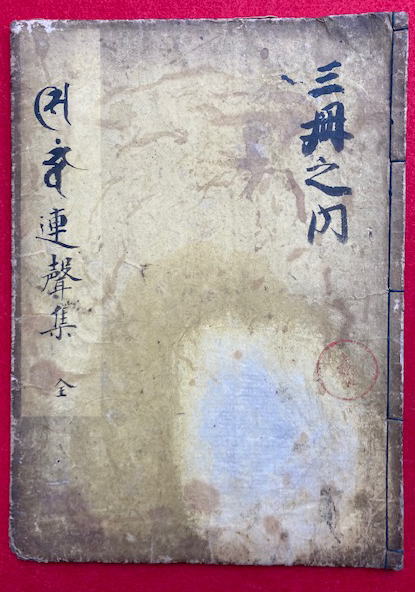 三冊之内
連聲集 全